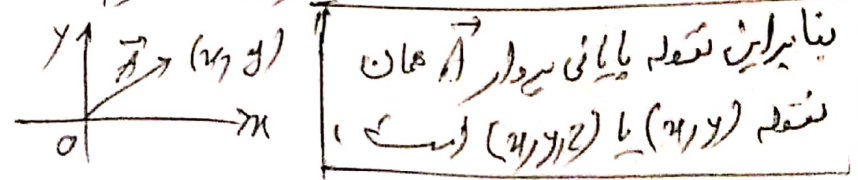 y
A⃗ (x, y)
O
x
بنابراین نقطه پایانی بردار A⃗ همان
نقطه (x, y) یا (x, y, z) است.